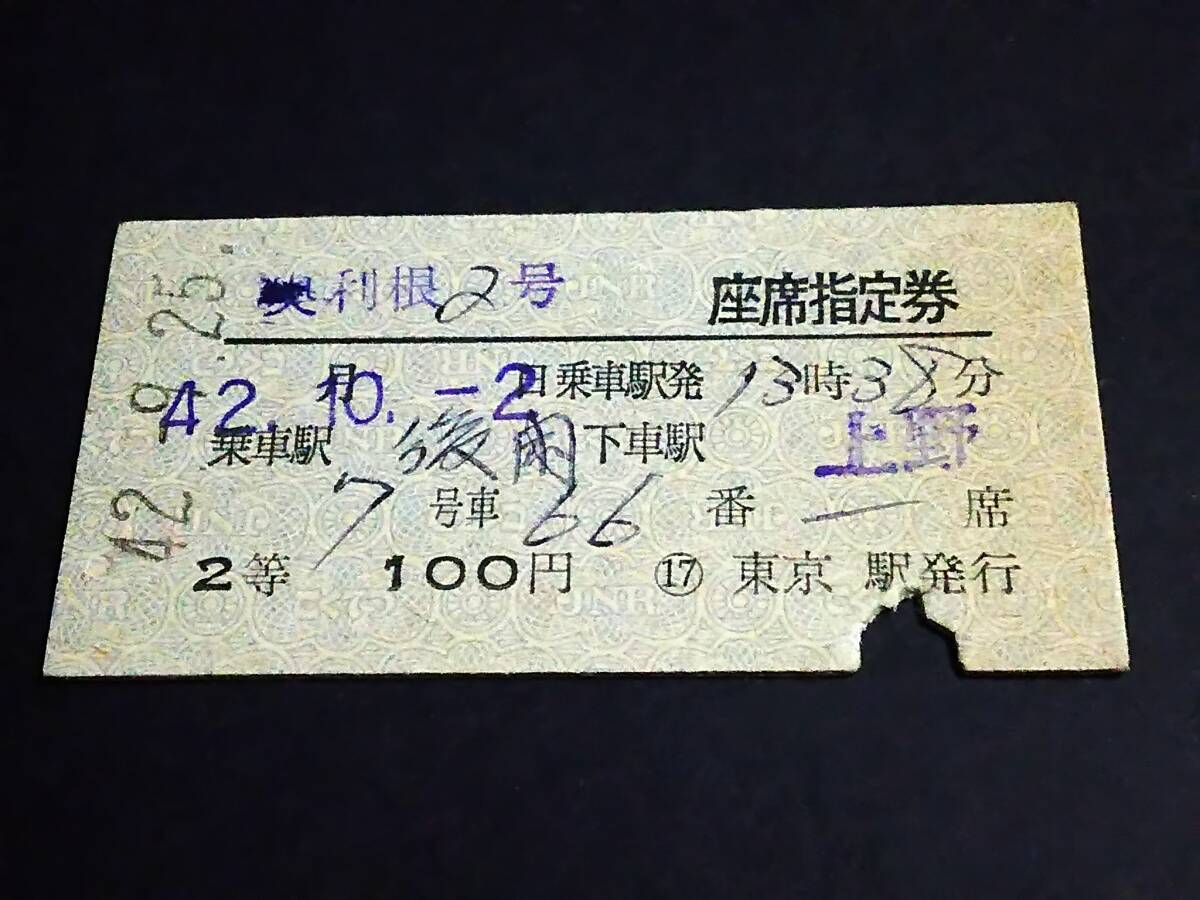 奥利根2号 座席指定券
42.10.-2 月 日 乗車駅発 13時38分
乗車駅 後閑 下車駅 上野
7 号車 66 番 一 席
2等 100円 ⑰ 東京 駅発行
42.-9.25.